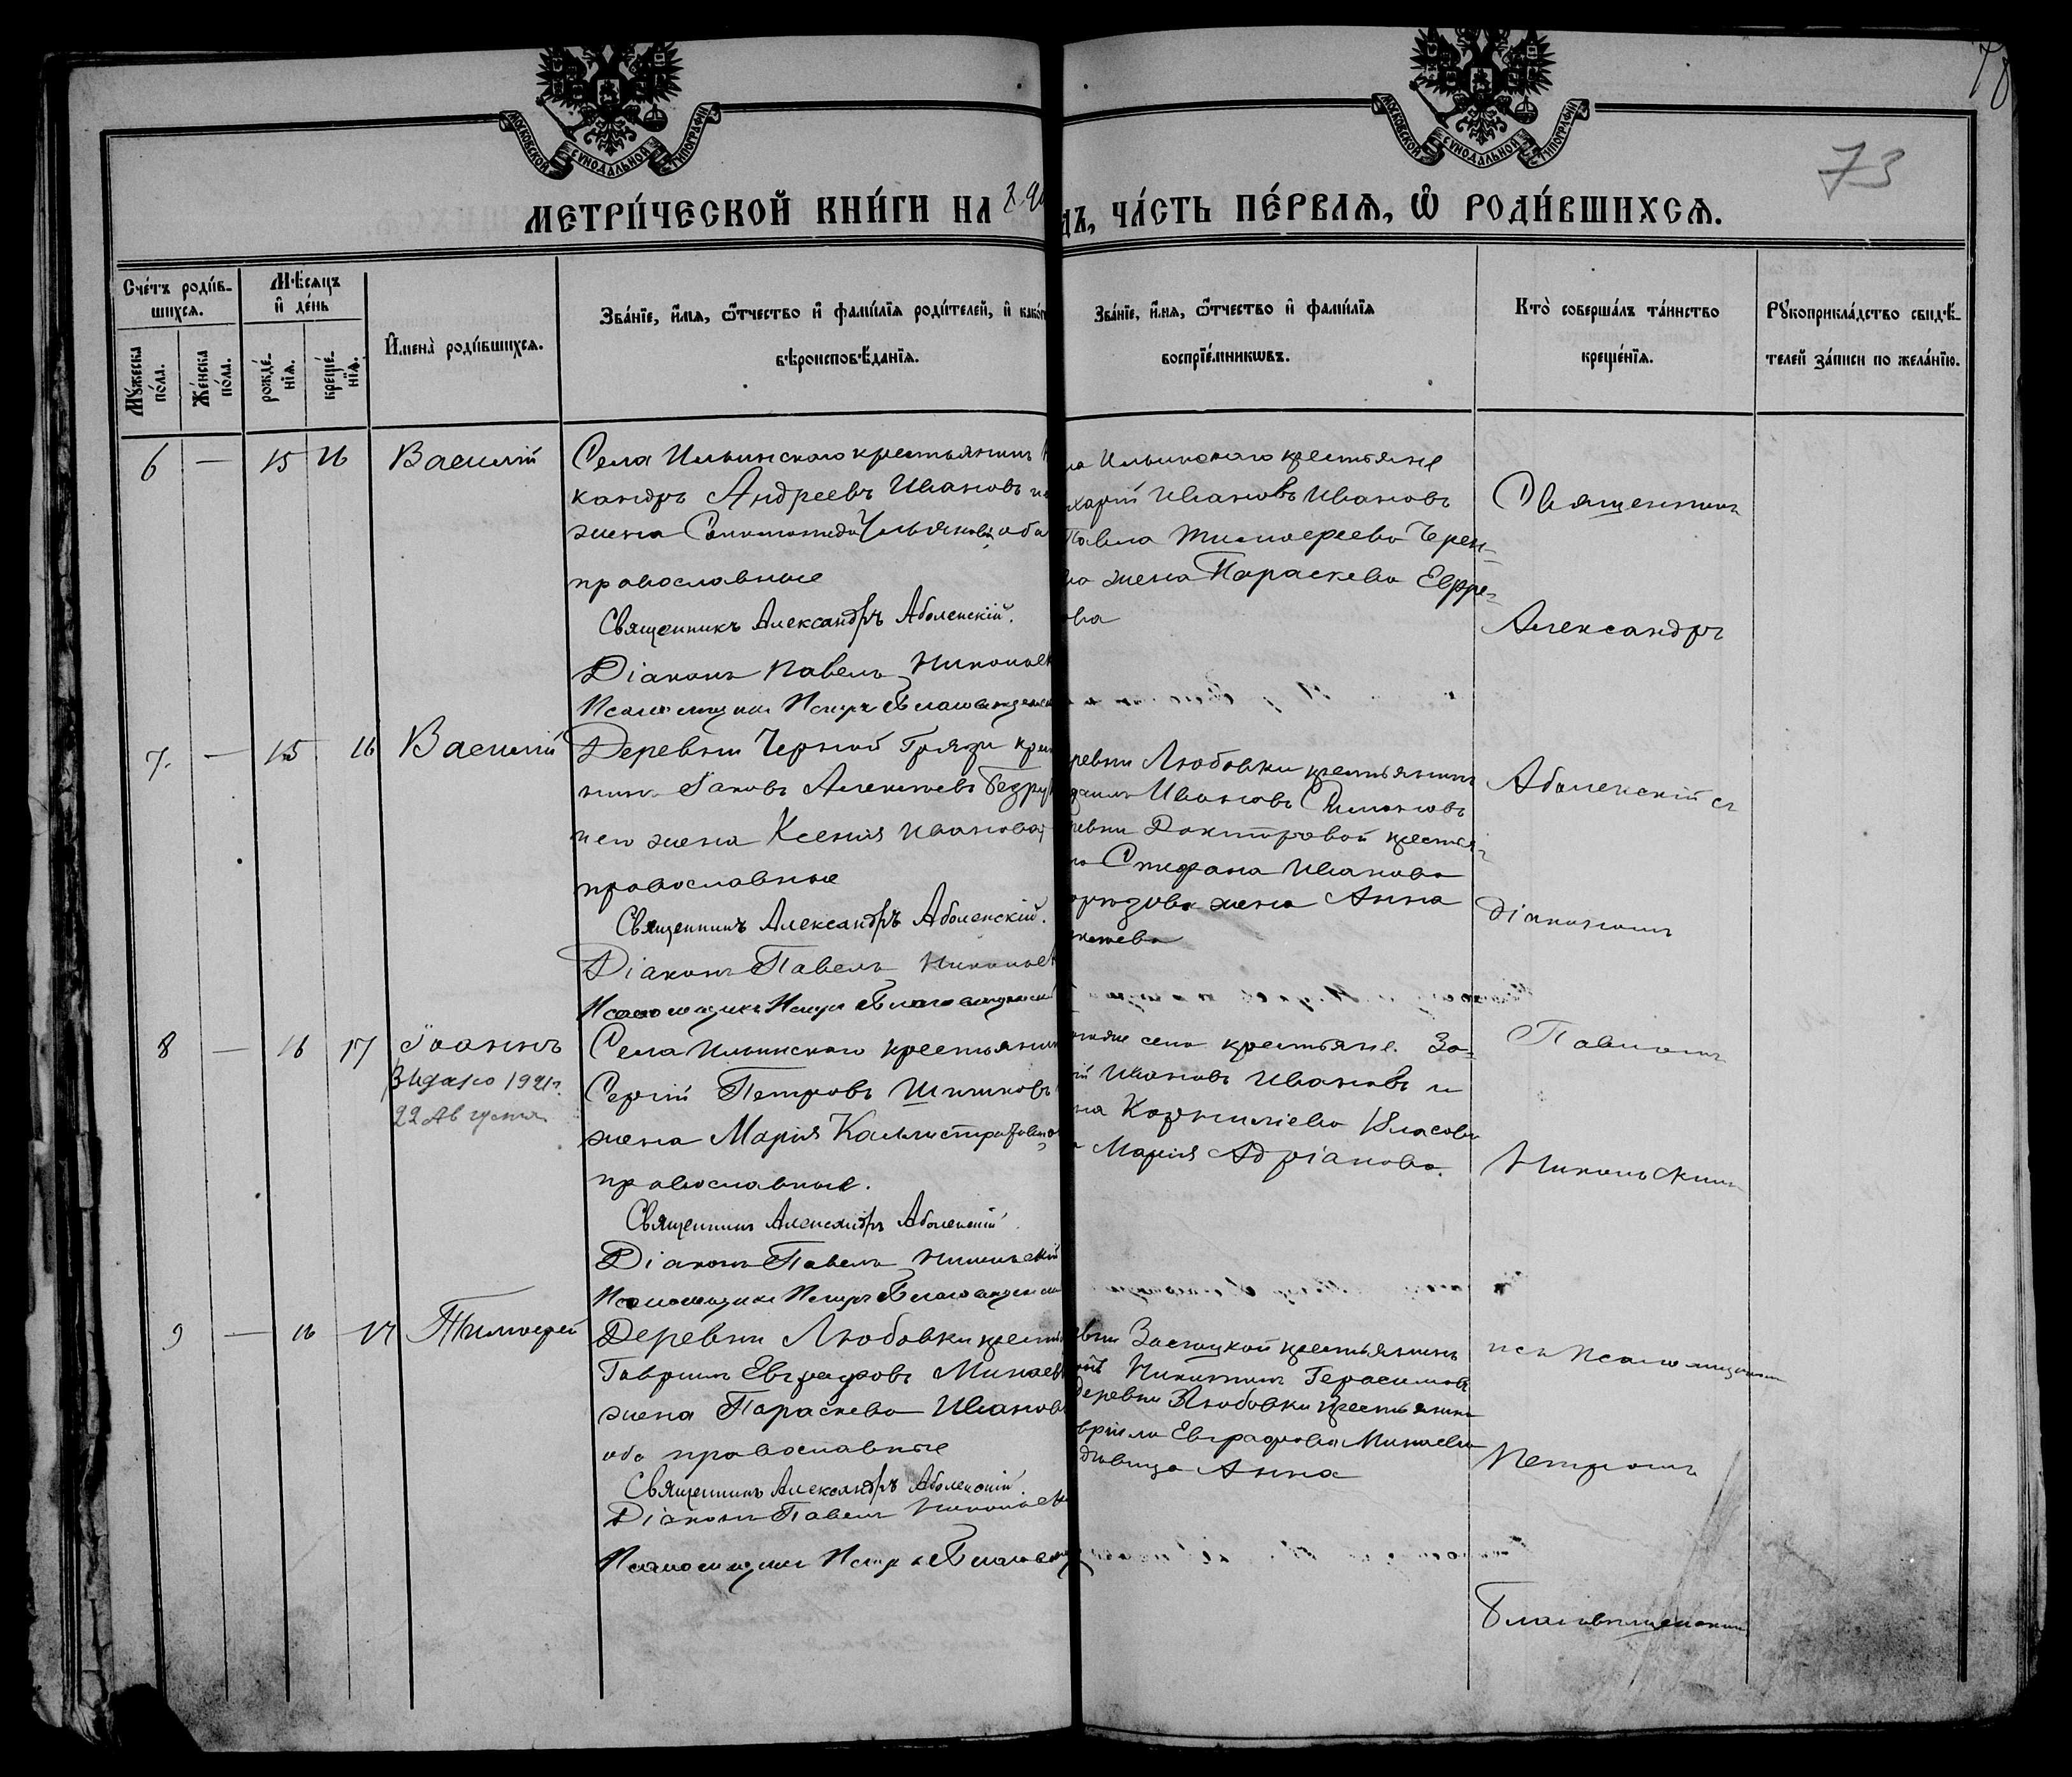 МОСКОВСКОЙ СѴНОДАЛЬНОЙ ТИПОГРАФІИ
МОСКОВСКОЙ СѴНОДАЛЬНОЙ ТИПОГРАФІИ
78
73
МЕТРИ́ЧЕСКОЙ КНИ́ГИ НА
ДЪ, ЧА́СТЬ ПЕ́РВАѦ, Ѡ҆ РОДИ́ВШИХСѦ.
Сче́тъ роди́в-
шихсѧ.
Мꙋ́жеска
по́ла.
Же́нска
по́ла.
Мѣ́сѧцъ
и҆ де́нь
рожде́-
нїѧ.
креще́-
нїѧ.
И҆мена̀ роди́вшихсѧ.
Зва́нїе, и҆́мѧ, ѻ҆́тчество и҆ фами́лїѧ роди́телей, и҆ како́г
вѣроисповѣ́данїѧ.
Зва́нїе, и҆́мѧ, ѻ҆́тчество и҆ фами́лїѧ
воспрїе́мникѡвъ.
Кто̀ соверша́лъ та́инство
креще́нїѧ.
Рꙋкоприкла́дство свидѣ́-
телей за́писи по жела́нїю.
6 — 15 16 Василій
Села Ильинскаго крестьянинъ
кандръ Андреевъ Ивановъ
жена оба
православные
Священникъ Александръ Аболенскій.
Діаконъ Павелъ Никольск
Псаломщикъ Петръ Благовѣщенск
Ильинскаго крестьяне
харій Ивановъ Ивановъ
Павла Тимоѳеева Черен-
ва жена Параскева Ефре-
ова
7. — 15 16 Василій
Деревни Черной Грязи крес
нинъ Іаковъ Алексѣевъ
него жена Ксенія Иванова,
православные
Священникъ Александръ Аболенскій.
Діаконъ Павелъ Никольск
Псаломщикъ Петръ Благовѣщенскій
ревни Любовки крестьянинъ
Ивановъ Симоновъ
ревни Докторовой крестья-
на Стефана Иванова
жена Анна
ксѣева
8 — 16 17 Іоаннъ
Видано 1921г.
22 Августа
Села Ильинскаго крестьянин
Сергій Петровъ Шишковъ
жена Марія Каллистратова
православные.
Священникъ Александръ Аболенскій.
Діаконъ Павелъ Никольскій
Псаломщикъ Петръ Благовѣщенск
села крестьяне. За-
ій Ивановъ Ивановъ и
на Корниліева Власова
Марія Адріанова.
9 — 16 17 Тимоѳей
Деревни Любовки крестья
Гавріилъ Евграфовъ Минаев
жена Параскева Иванов
оба православные
Священникъ Александръ Аболенскій.
Діаконъ Павелъ Никольск
Псаломщикъ Петръ Благовѣщ
вни Засѣцкой крестьянинъ
Никитинъ Герасимовъ
деревни Любовки крестьянина
вріила Евграфова Минаева
дѣвица Анна
Священникъ
Александръ
Аболенскій съ
Діакономъ
Павломъ
Никольскимъ
и съ Псаломщикомъ
Петромъ
Благовѣщенскимъ